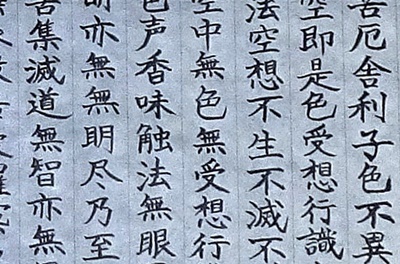 苦厄舎利子色不異
空即是色受想行識
法空想不生不滅不
空中無色無受想行
色声香味触法無眼
明亦無無明尽乃至
苦集滅道無智亦無